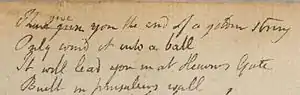 give
I given you the end of a golden string
Only wind it into a ball
It will lead you in at Heavens Gate
Built in Jerusalems wall